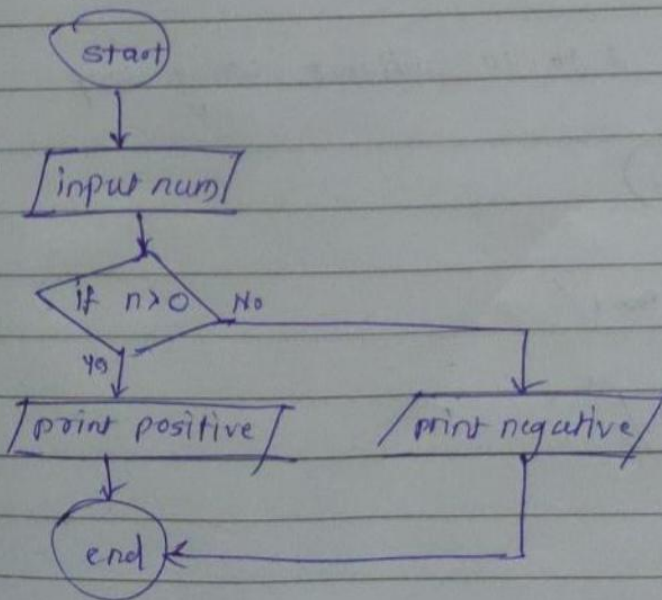 start
input num
if n>0 No
Yes
print positive
print negative
end